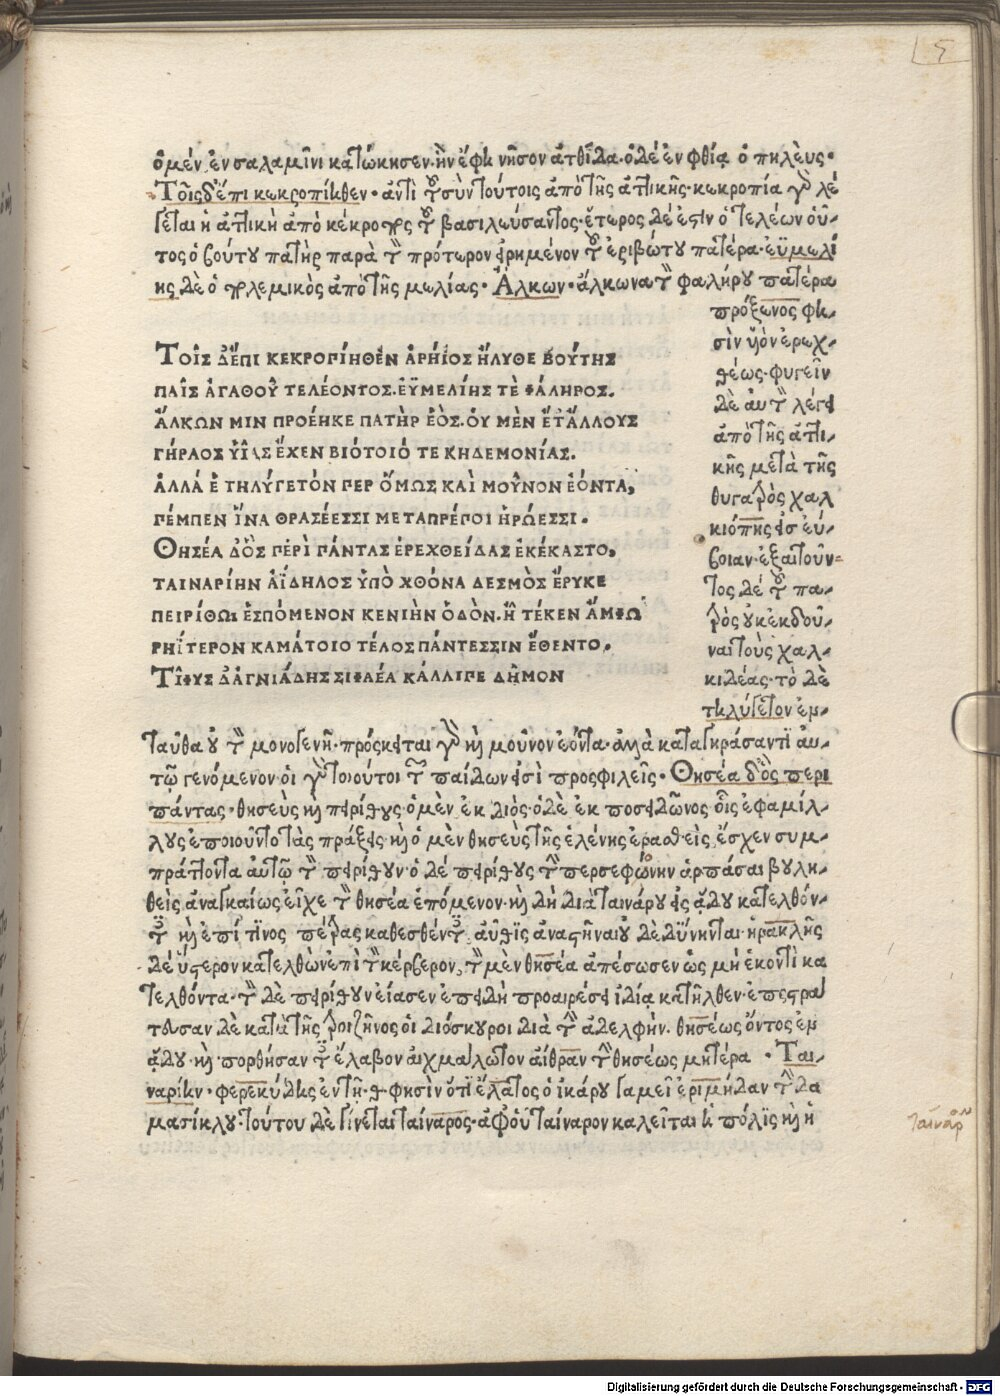 5
ὁ μέν ἐν σαλαμῖνι κατώκησεν· ἣν ἔφη νῆσον ἀτθίδα· ὁ δέ ἐν φθίᾳ ὁ πηλεὺς·
Τοῖς δ' ἔπι κεκροπίηθεν· ἀντὶ τοῦ σὺν τούτοις ἀπὸ τῆς ἀττικῆς· κεκροπία γὰρ λέ
γεται ἡ ἀττικὴ ἀπὸ κέκροπος τοῦ βασιλεύσαντος· ἕτερος δέ ἐστὶν ὁ τελέων οὗ
τος ὁ βούτου πατὴρ παρὰ τὸν πρότερον εἰρημένον τοῦ ἐριβώτου πατέρα· εὐμελί
ης δὲ ὁ πολεμικὸς ἀπὸ τῆς μελίας· Ἄλκων· ἄλκωνα τὸν φαλήρου πατέρα
ΤΟῙΣ Δ' ἜΠΙ ΚΕΚΡΟΠΊΗΘΕΝ ἈΡΉΙΟΣ ἬΛΥΘΕ ΒΟΎΤΗΣ
ΠΑΪ͂Σ ἈΓΑΘΟΥ͂ ΤΕΛΈΟΝΤΟΣ. ἘΫΜΕΛΊΗΣ ΤῈ ΦΆΛΗΡΟΣ.
ἌΛΚΩΝ ΜΙΝ ΠΡΟΈΗΚΕ ΠΑΤῊΡ ἙΌΣ. ΟΥ̓ ΜῈΝ ἜΤ' ἌΛΛΟΥΣ
ΓΉΡΑΟΣ ΥἿΑΣ ἜΧΕΝ ΒΙΌΤΟΙΌ ΤΕ ΚΗΔΕΜΟΝΊΑΣ.
ἈΛΛΆ Ἑ ΤΗΛΎΓΕΤΌΝ ΠΕΡ ὍΜΩΣ ΚΑῚ ΜΟΥ͂ΝΟΝ ἘΌΝΤΑ,
ΠΈΜΠΕΝ ἽΝΑ ΘΡΑΣΈΕΣΣΙ ΜΕΤΑΠΡΈΠΟΙ ἩΡΏΕΣΣΙ.
ΘΗΣΈΑ Δ' ὋΣ ΠΕΡῚ ΠΆΝΤΑΣ ἘΡΕΧΘΕΊΔΑΣ ἘΚΈΚΑΣΤΟ,
ΤΑΙΝΑΡΊΗΝ ἈΪ́ΔΗΛΟΣ ὙΠῸ ΧΘΌΝΑ ΔΕΣΜῸΣ ἜΡΥΚΕ
ΠΕΙΡΊΘΩΙ ἙΣΠΌΜΕΝΟΝ ΚΕΝΙῊΝ ὉΔῸΝ. Ἦ ΤΈΚΕΝ ἌΜΦΩ
ΡΗΪ́ΤΕΡΟΝ ΚΑΜΆΤΟΙΟ ΤΈΛΟΣ ΠΆΝΤΕΣΣΙΝ ἜΘΕΝΤΟ.
ΤΊΦΥΣ Δ' ἉΓΝΙΆΔΗΣ ΣΙΦΑΈΑ ΚΆΛΛΙΠΕ ΔΗ͂ΜΟΝ
πρόξενος φη-
σὶν υἱὸν ἐρεχ-
θέως· φυγεῖν
δὲ αὐτὸν λέγει
ἀπὸ τῆς ἀττι-
κῆς μετὰ τῆς
θυγατρὸς χαλ
κιόπης εἰς εὔ-
βοιαν· ἐξαιτοῦν-
τος δέ τοῦ πα-
τρὸς οὐκ ἐκδοῦ-
ναι τοὺς χαλ-
κιδέας· τὸ δὲ
τηλύγετον ἐν-
ταῦθα οὐ τὸν μονογενῆ· πρόσκειται γὰρ καὶ μοῦνον ἐόντα· ἀλλὰ καταγηράσαντι αὐ-
τῷ γενόμενον· οἱ γὰρ τοιούτοι τῶν παίδων εἰσὶ προσφιλεῖς· Θησέα δ' ὃς περι
πάντας· θησεὺς καὶ πειρίθους· ὁ μὲν ἐκ διὸς· ὁ δὲ ἐκ ποσειδῶνος οἷς ἐφαμίλ-
λους ἐποιοῦντο τὰς πράξεις· καὶ ὁ μὲν θησεὺς τῆς ἑλένης ἐρασθεὶς ἔσχεν συμ-
πράττοντα αὐτῷ τὸν πειρίθουν· ὁ δέ πειρίθους τὴν περσεφώνην ἁρπάσαι βουλη-
θεὶς ἀναγκαίως εἶχε τὸν θησέα ἑπόμενον· καὶ δὴ διὰ ταινάρου εἰς ᾅδου κατελθόν-
των καὶ ἐπί τινος πέτρας καθεσθέντων αὖθις ἀναστῆναι οὐ δεδύνηνται· ἡρακλῆς
δέ ὕστερον κατελθὼν ἐπὶ τὸν κέρβερον, τὸν μὲν θησέα ἀπέσωσεν ὡς μὴ ἑκοντὶ κα
τελθόντα· τὸν δὲ πειρίθουν εἴασεν ἐπειδὴ προαιρέσει ἰδίᾳ κατῆλθεν· ἐπεστρά
τευσαν δὲ κατὰ τῆς τροιζῆνος οἱ διόσκυροι διὰ τὴν ἀδελφὴν· θησέως ὄντος ἐν
ᾅδου· καὶ πορθήσαντες ἔλαβον αἰχμάλωτον αἴθραν τὴν θησέως μητέρα · Ται-
ναρίην· φερεκύδης ἐν τῇ· φησὶν ὅτι ἔλατος ὁ ἰκάρου γαμεῖ ἐριμήδαν τὴν δα
μασίκλου· τούτου δὲ γίνεται ταίναρος· ἀφ' οὗ ταίναρον καλεῖται ἡ πόλις καὶ ἡ
ταίναρον
Digitalisierung gefördert durch die Deutsche Forschungsgemeinschaft - DFG